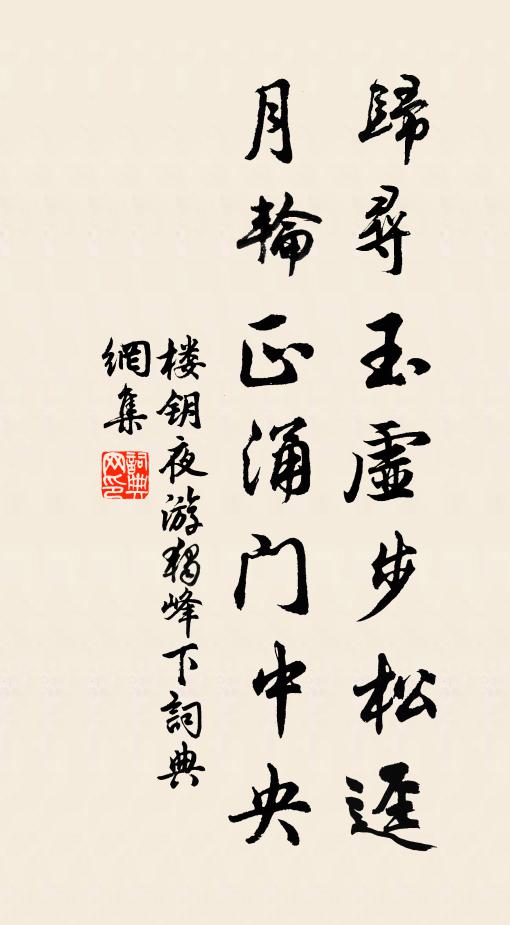 歸尋玉虛步松逕
月輪正涌門中央
楼钥夜游獨峰下詞典
網集
詞典
网印